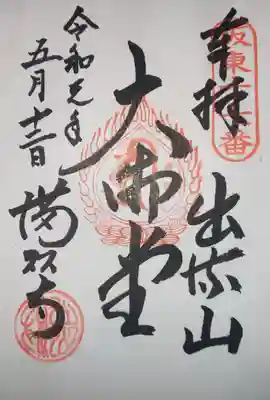 坂東十七番
奉拝
出流山
大御堂
令和元年
五月十二日
満願寺